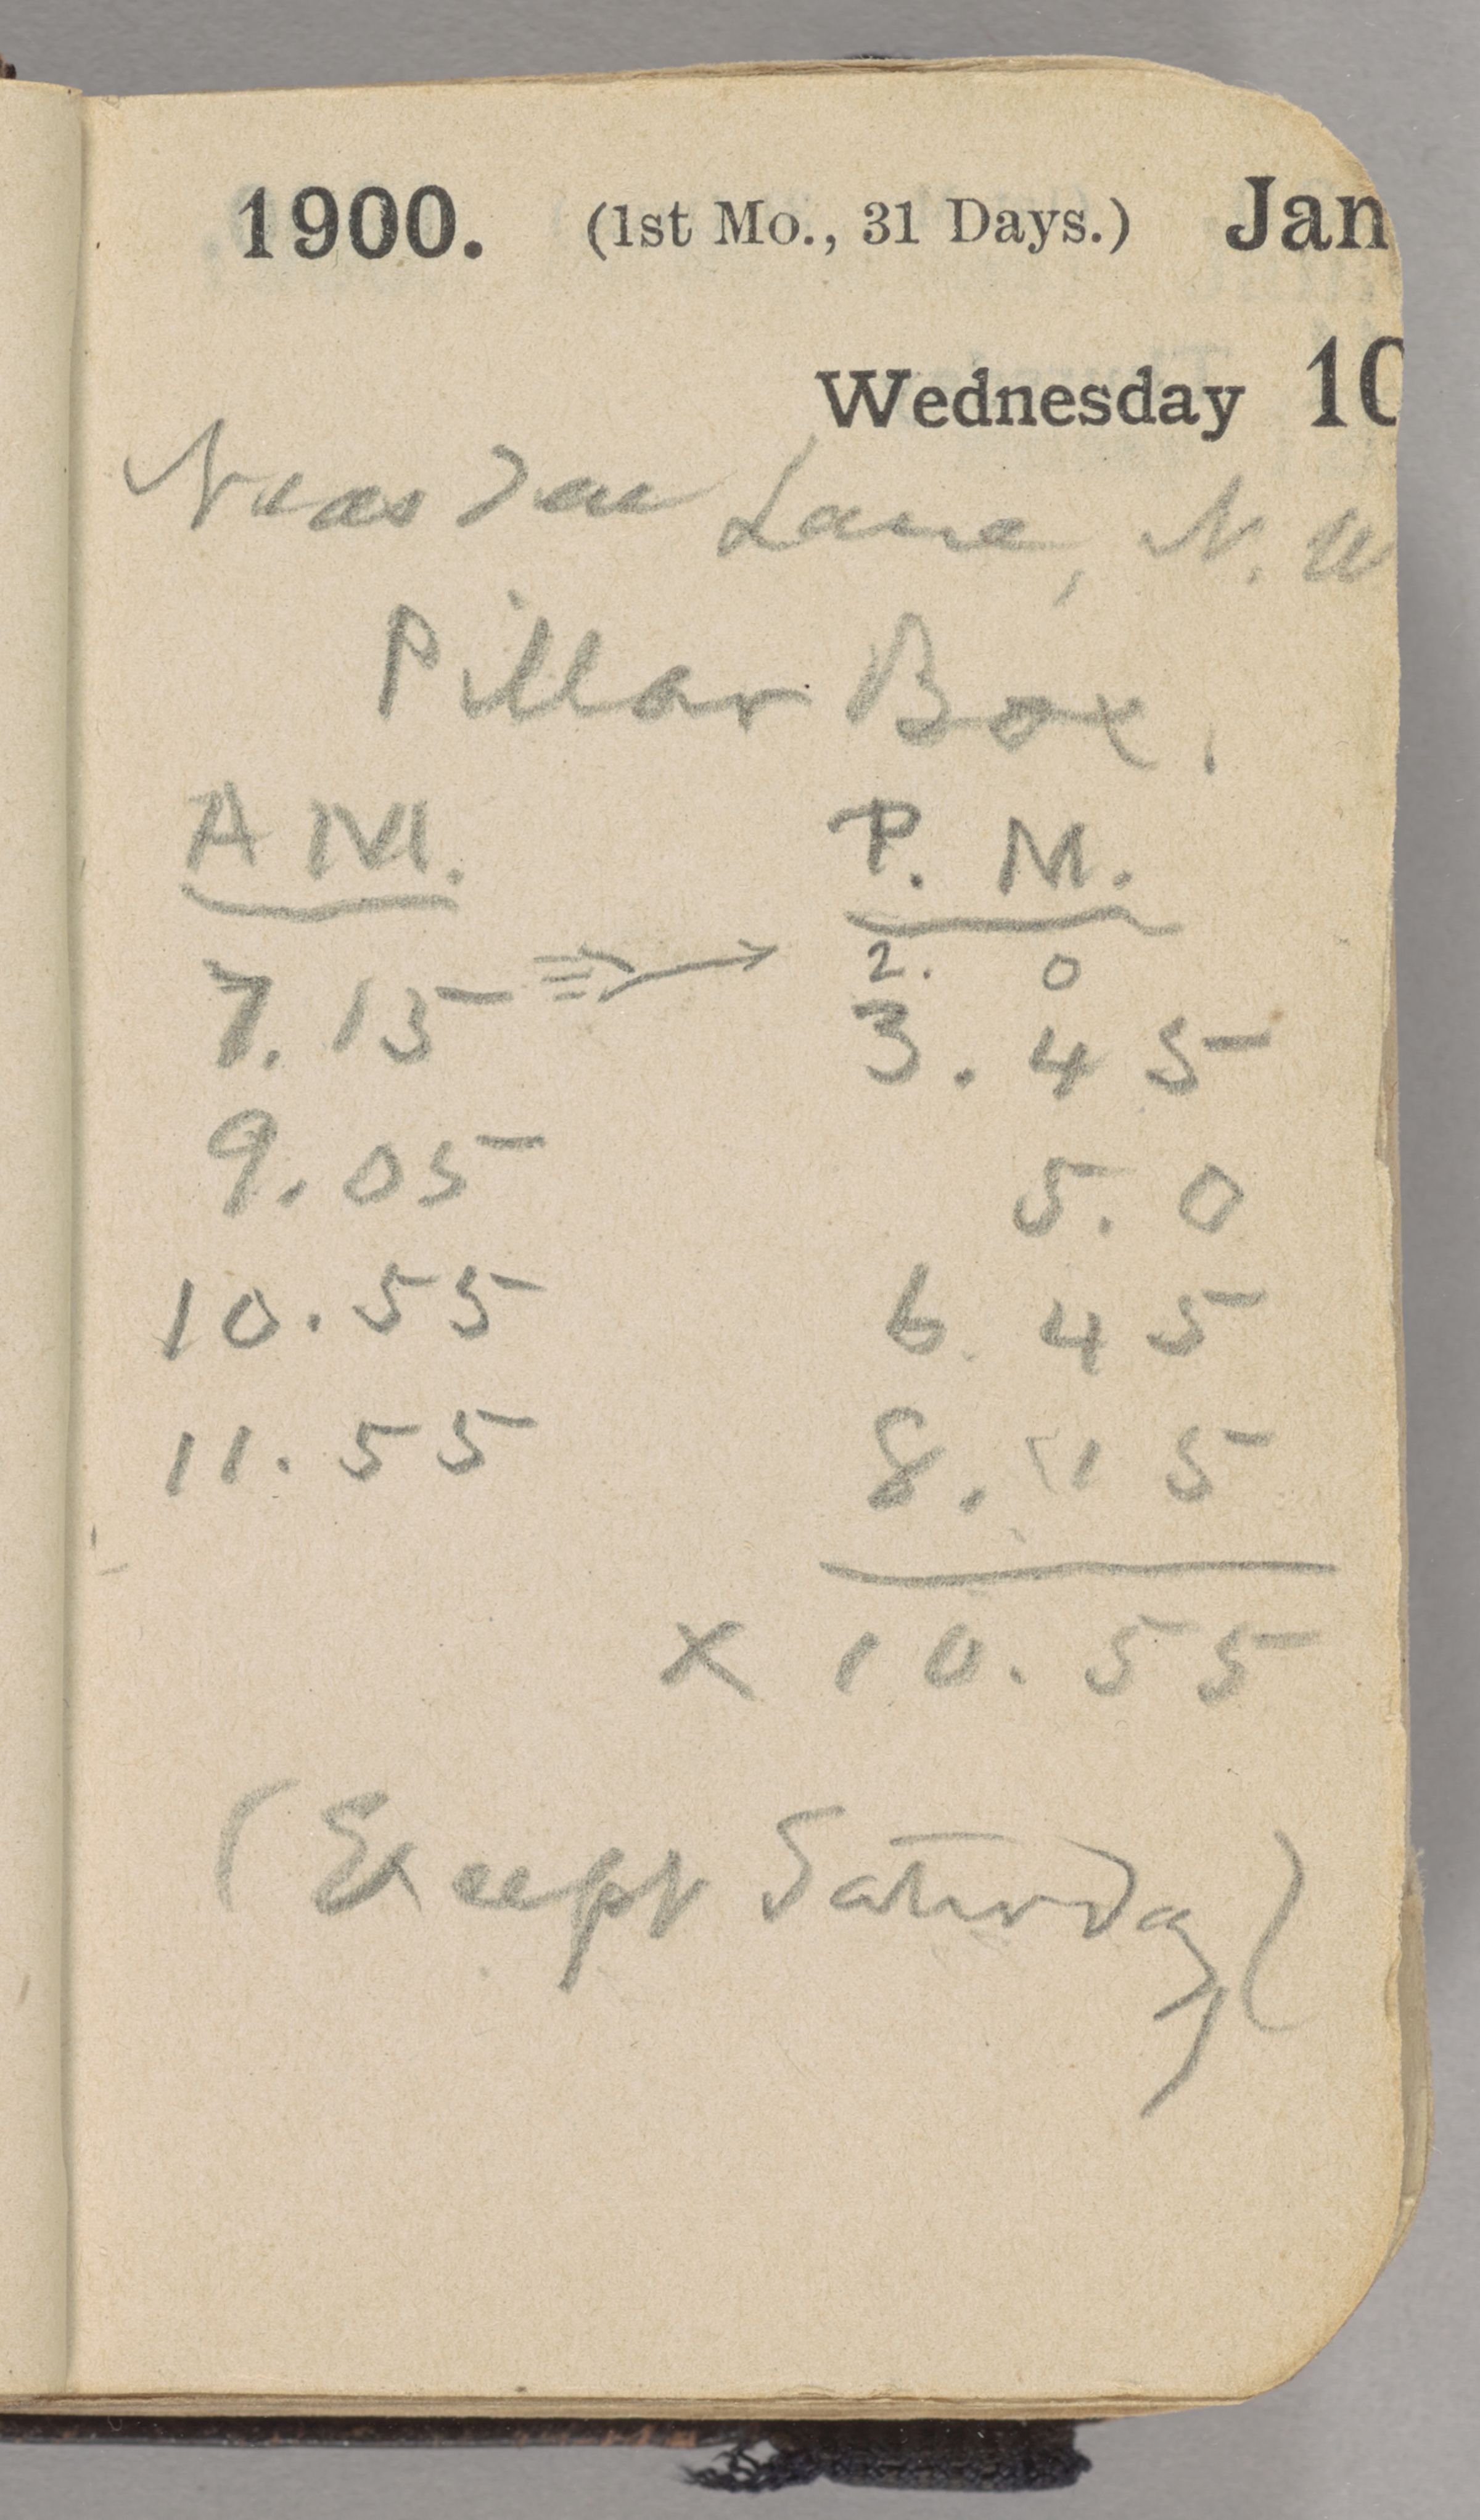 1900. (1st Mo., 31 Days.) Jan
Wednesday 10
Neasden Lane, N. W
Pillar Box.
A M. P. M.
7. 15 → 2. 0
3. 45
9. 05 5. 0
10. 55 6. 45
11. 55 8. 15
x 10. 55
(Except Saturday)